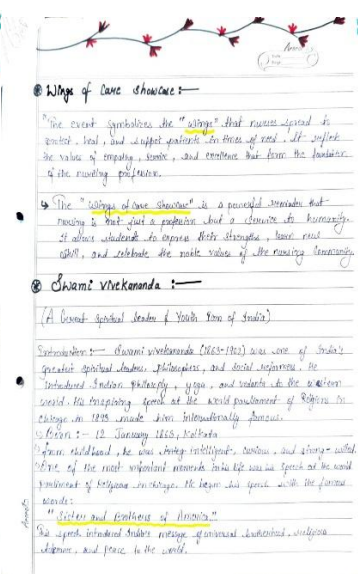 Wings of Care Showcase :—
"The event symbolizes the "Wings" that nurses spread to
protect, heal, and support patients in times of need. It reflect
the values of empathy, service, and excellence that form the foundation
of the nursing profession.
↳ The "Wings of care showcase" is a powerful reminder that
nursing is not just a profession but a service to humanity.
It allows students to express their strengths, learn new
skill, and celebrate the noble values of the nursing community.
Swami Vivekananda :—
(A Great Spiritual Leader & Youth Icon of India)
Introduction :— Swami Vivekananda (1863-1902) was one of India's
greatest spiritual leaders, philosophers, and social reformers. He
introduced Indian philosophy, yoga, and vedanta to the western
world. His inspiring speech at the world parliament of Religions in
Chicago in 1893 made him internationally famous.
Born :- 12 January 1863, Kolkata
From childhood, he was intelligent, curious, and strong-willed.
One of the most important moments in his life was his speech at the world
Parliament of Religions in Chicago. He began his speech with the famous
words:
"Sisters and Brothers of America"
This speech introduced message of universal brotherhood, religious
tolerance, and peace to the world.